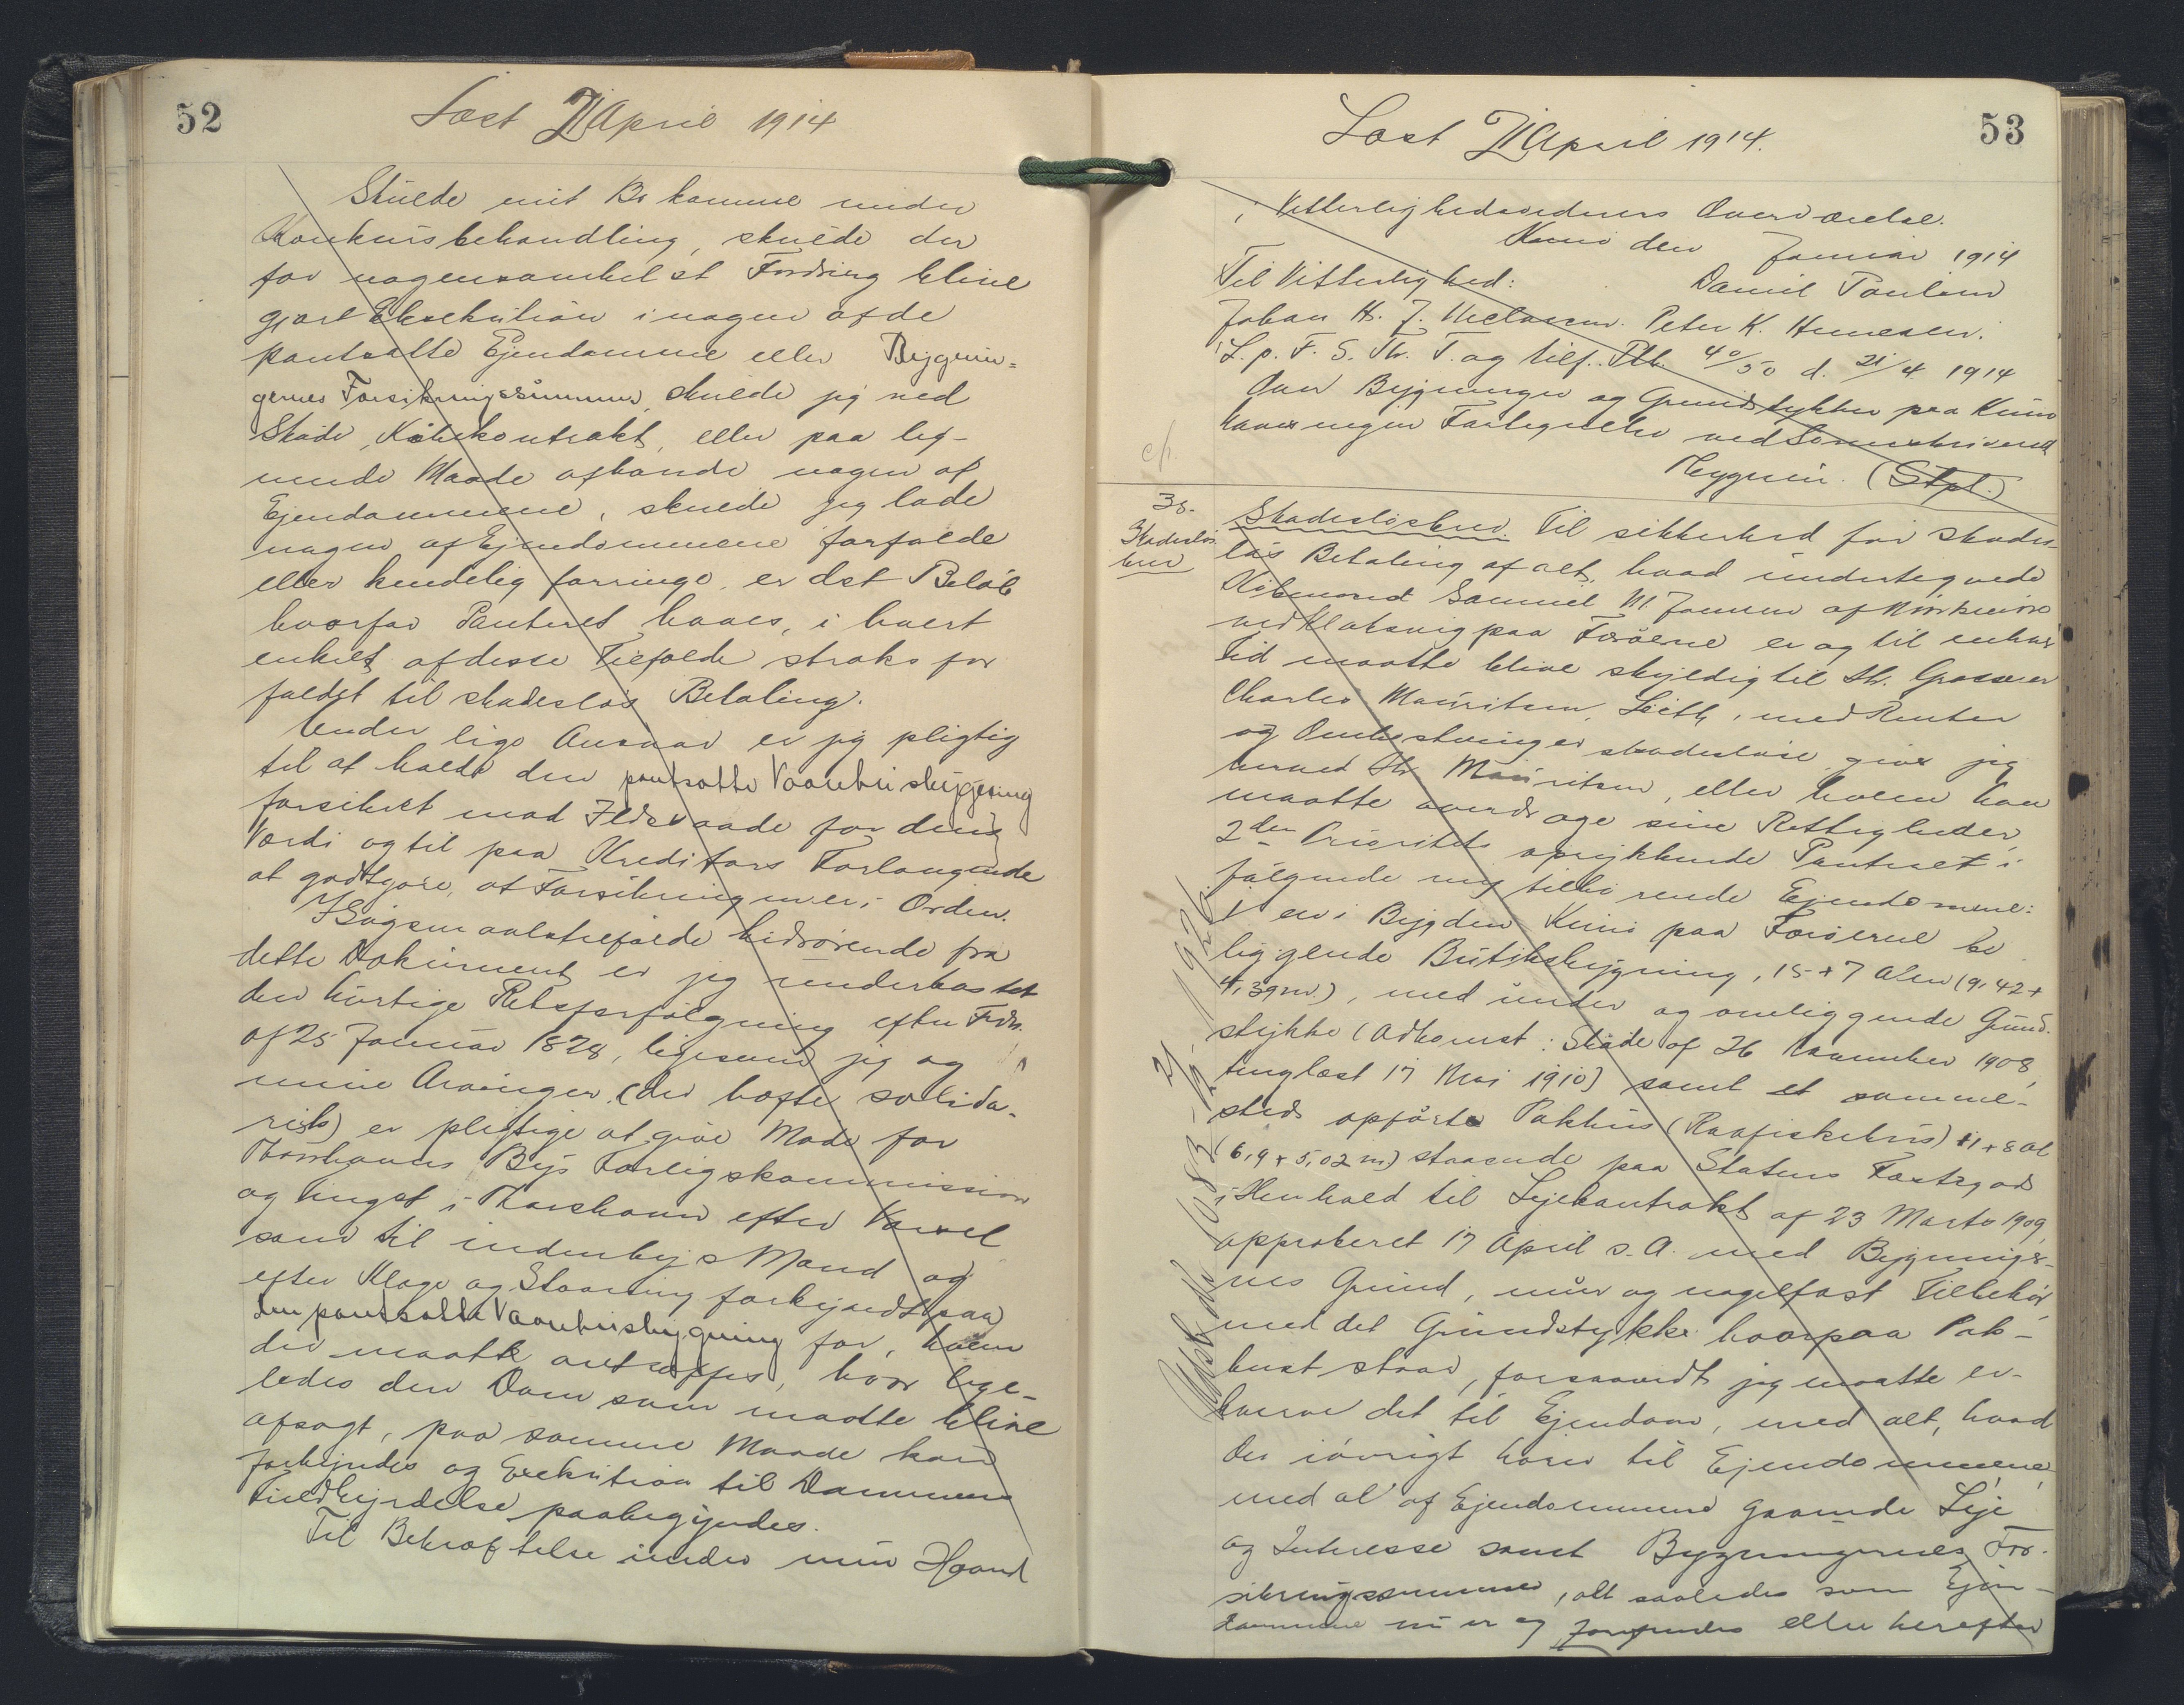 52
Læst 21 April 1914
Skulde mit Bo komme under
Konkursbehandling, skulde der
for nogensomhelst Fordring blive
gjort Eksekution i nogen af de
pantsatte Ejendomme eller Bygnin-
gernes Forsikringssummer, skulde jeg ved
Skøde, Købekontrakt, eller paa lig-
nende Maade afhænde nogen af
Ejendommene, skulde jeg lade
nogen af Ejendommene forfalde
eller kendelig forringe, er det Beløb
hvorfor Panteret haves, i hvert
enkelt af disse Tilfælde straks for
faldet til skadesløs Betaling.
Under lige Ansvar er jeg pligtig
til at holde den pantsatte Vaanhusbygning
forsikret mod Ildsvaade for dens
Værdi og til paa Kreditors Forlangende
at godtgøre, at Forsikringen er i Orden.
I Søgsmaalstilfælde hidrørende fra
dette Dokument er jeg underkastet
den hurtige Retsforfølgning efter Frdn.
af 25 Januar 1828, ligesom jeg og
mine Arvinger (der hæfte solida-
risk) er pligtige at give Møde for
Thorshavns Bys Forligskommission
og Tinget i Thorshavn efter Varsel
som til indenbys Mand og
efter Klage og Stævning forkyndt paa
den pantsatte Vaanhusbygning for, hvem
der maatte antræffes, hvor lige-
ledes den Dom som maatte blive
afsagt, paa samme Maade kan
forkyndes og Exekution til Dommens
Fuldbyrdelse paabegyndes.
Til Bekræftelse under min Haand
53
Læst 21 April 1914.
i Vitterlighedsvidners Overværelse.
Kunø den Januar 1914
Til Vitterlighed: Daniel Paulsen
Johan H. J. Niclasen. Peter K. Hennesen.
L. p. F. S. Th. T. og tilf. Ptb. 40/50 d. 21/4 1914
Over Bygninger og Grundstykker paa Kunø
haves ingen Fastegnelse ved Sorenskriveriet
(Stpl.)
cfr.
38.
Skadesløs
brev
Skadesløsbrev. Til sikkerhed for skades-
løs Betaling af alt, hvad undertegnede
Købmand Samuel M. Jensen af
ved Klaksvig paa Færøerne er og til enhver
Tid maatte blive skyldig til Hr. Grosserer
Charles Mauritzen, Leith, med Renter
og Omkostninger skadesløse, giver jeg
herved Hr. Mauritzen, eller hvem han
maatte overdrage sine Rettigheder,
2den Prioritets oprykkende Panteret i
følgende mig tilhørende Ejendomme:
1 en i Bygden Kunø paa Færøerne be
liggende Butiksbygning, 15 + 7 Alen (9,42 +
4,39 m), med under og omliggende Grund-
stykke (Adkomst: Skøde af 26 November 1908,
tinglæst 17 Maj 1910) samt et samme-
steds opført Pakhus (Raafiskehus) 11 + 8 Al
(6,9 + 5,02 m) staaende paa Statens Fæstegods
i Henhold til Lejekontrakt af 23 Marts 1909,
approberet 17 April s. A. med Bygninger-
nes Grund, mur og nagelfast Tilbehør
med det Grundstykke hvorpaa Pak-
huset staar, forsaavidt jeg maatte er-
hverve det til Ejendom, med alt, hvad
der iøvrigt hører til Ejendommene,
med al af Ejendommene gaaende Leje
og Interesse samt Bygningernes For-
sikringssummer, alt saaledes som Ejen-
dommene nu er og forefindes eller herefter